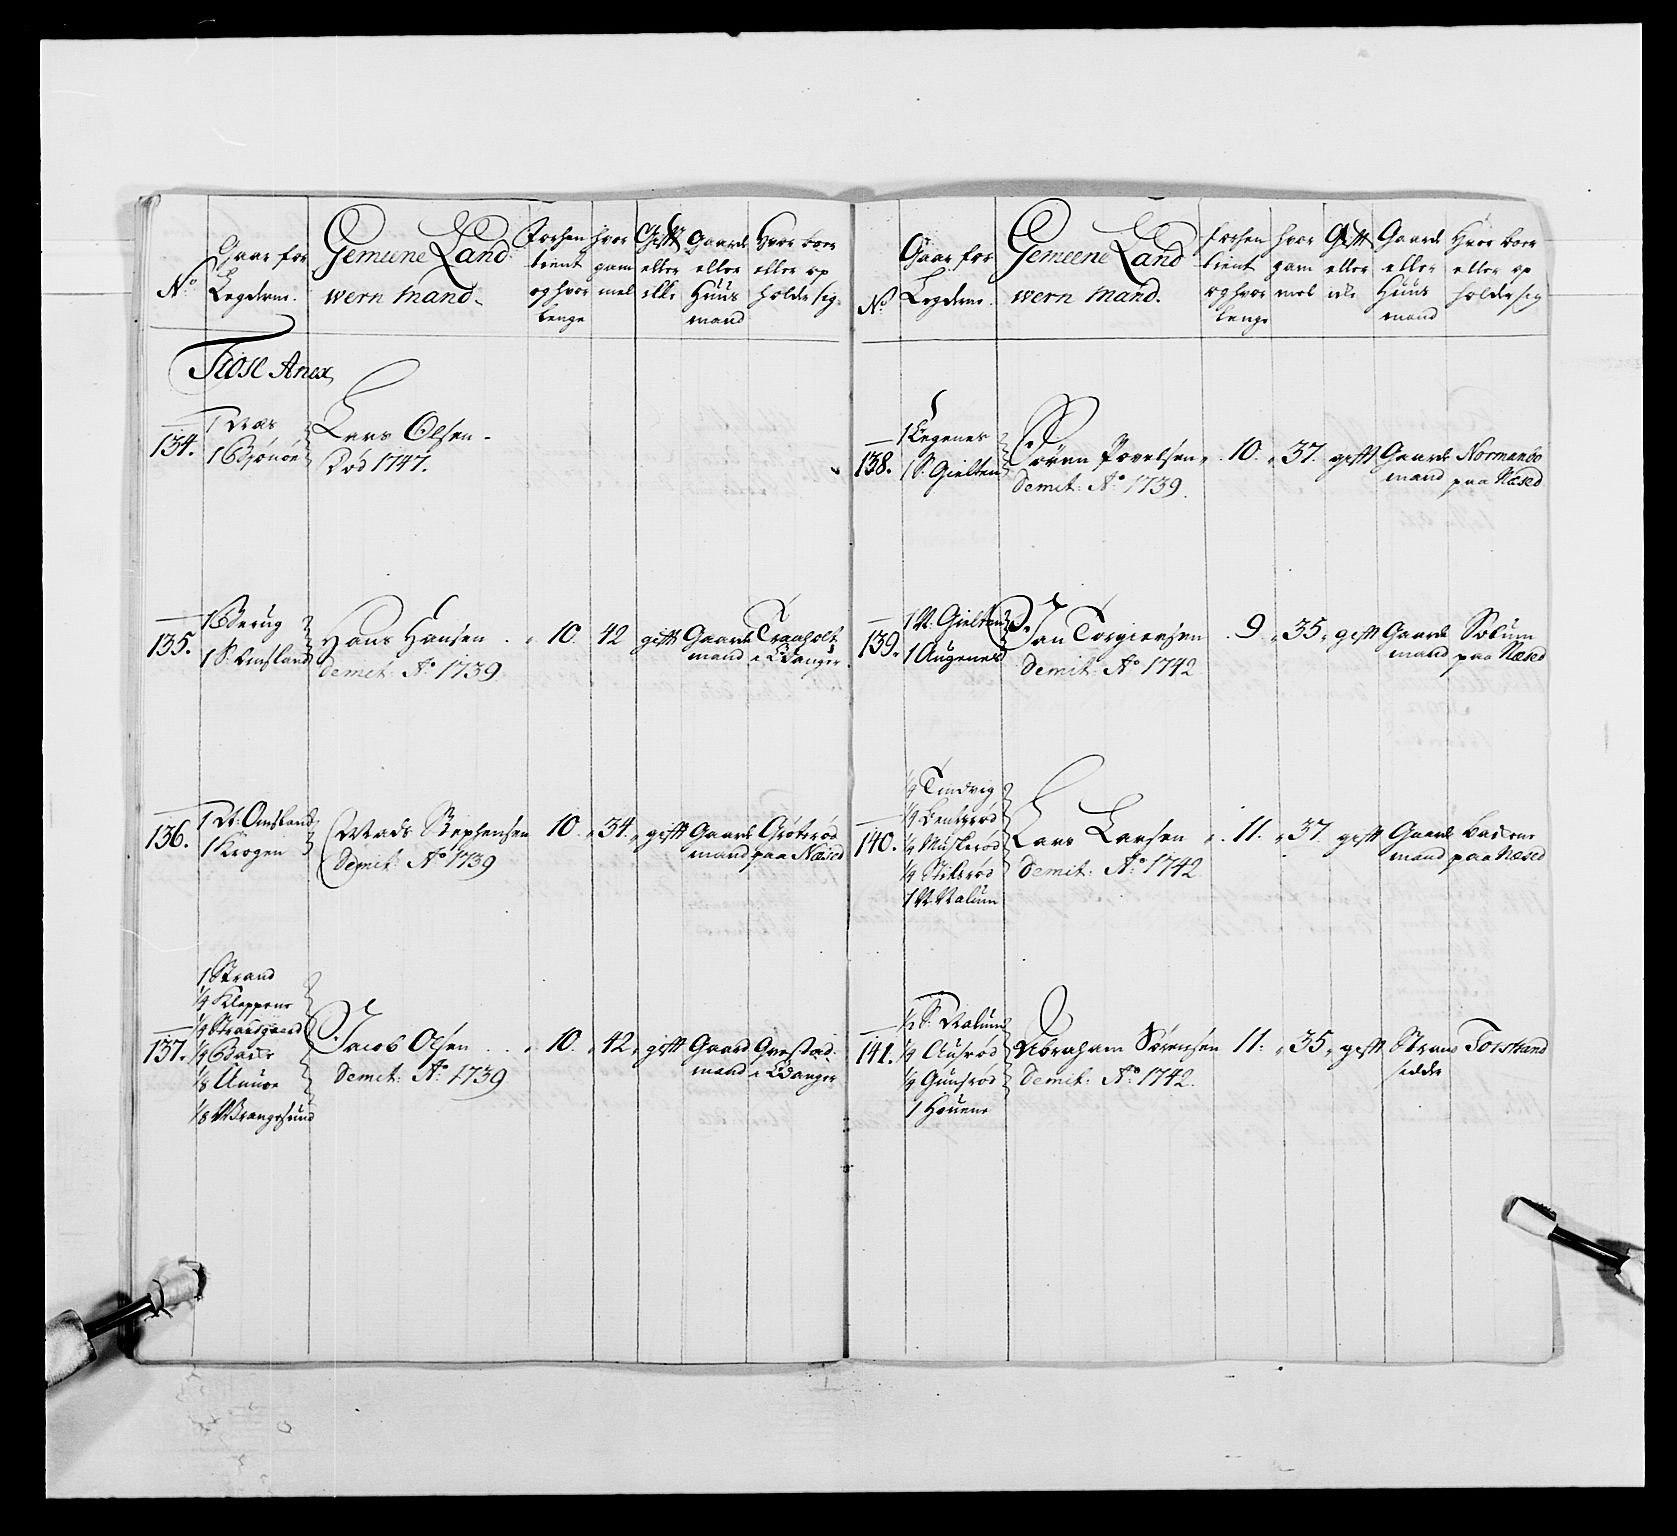 No
Gaar for
Legderne.
Gemeene Land
wern Mand.
Forhen
tient
og hvor
lenge
hvor
gam
mel
Gifft
eller
ikke
Gaard
eller
Huus
mand
Hvor boer
eller op
holder sig.
Tiose Anex
134.
1 Næs
1 Biønøe
Lars Olsen.
Død 1747.
135.
1 Berug
1 S: Omsland
Hans Hansen
demit: Ao 1739
10.
42
gifft
Gaard
mand
Traaholt
i Eidanger
136.
1 N: Omsland
1 Krogen
Mads Stephensen
Demit: Ao 1739
10.
34.
gifft
Gaard
mand
Grøterød
paa Næsed
137.
1 Strand
1/4 Kleppene
1/4 Strandgaard
1/4 Basse
1/8 Auuøe
1/8 W: Brangesund
Jacob Olsen
Demit: Ao 1739
10.
42.
gifft
Gaard
mand
Grestad
i Eidanger
No
Gaar for
Legderne.
Gemeene Land
wern Mand.
forhen
tient
og hvor
lenge
hvor
gam
mel
Gifft
eller
ikke
Gaard
eller
Huus
mand
Hvor boer
eller op
holder sig
138.
1 Legenes
1 S: Gielten
Søren Povelsen
Demit: Ao 1739.
10.
37.
gifft
Gaard
mand
Normanbo
paa Næsed
139.
1 N: Gielten
1 Augenes
Jan Torgiersen
Demit: Ao 1742
9
35.
gifft
Gaard
mand
Solum
paa Næsed
140.
1/4 Tindvig
1/4 Bentzrød
1/4 Muslerød
1/4 Stilsrød
1 N: Nalum
Lars Larsen
Demit: Ao 1742
11.
37.
gifft
Gaard
mand
Bassene
paa Næsed
141.
1/2 S: Nalum
1/4 Ausrød
1/4 Gunsrød
1 Houene
Abraham Sørensen
Demit: Ao 1742.
11.
35.
gifft
Strand
sidder
Torstrand